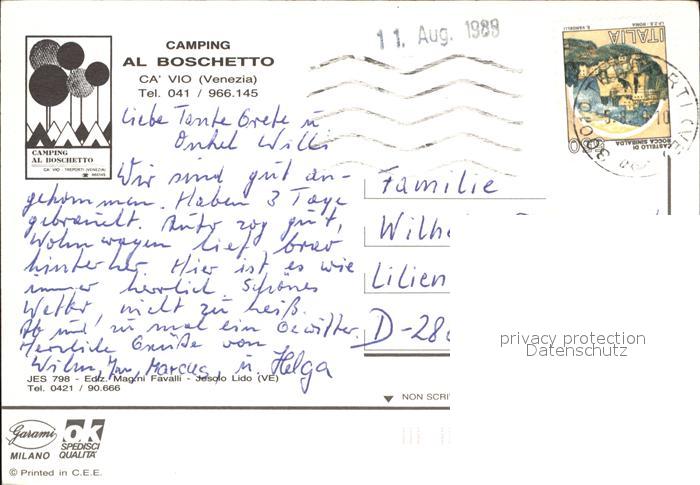 11. Aug. 1989
CAMPING
AL BOSCHETTO
CA' VIO (Venezia)
Tel. 041 / 966.145
CAMPING
AL BOSCHETTO
CA' VIO - TREPORTI (VENEZIA)
ITALIA
CASTELLO DI
ROCCA SINIBALDA
Liebe Tante Grete u
Onkel Willi
Wir sind gut an-
gekommen. Haben 3 Tage
gebraucht. Auto zog gut,
Wohnwagen lief brav
hinterher. Hier ist es wie
immer herrlich. Schönes
Wetter, nicht zu heiß.
Ab und zu mal ein Gewitter.
Herzliche Grüße von
Wilm, Marcus, u. Helga
Familie
Wilhe
Lilien
D-28
privacy protection
Datenschutz
JES 798 - Ediz. Mag.ni Favalli - Jesolo Lido (VE)
Tel. 0421 / 90.666
NON SCRI
Garami
MILANO
ok
SPEDISCI
QUALITA'
© Printed in C.E.E.